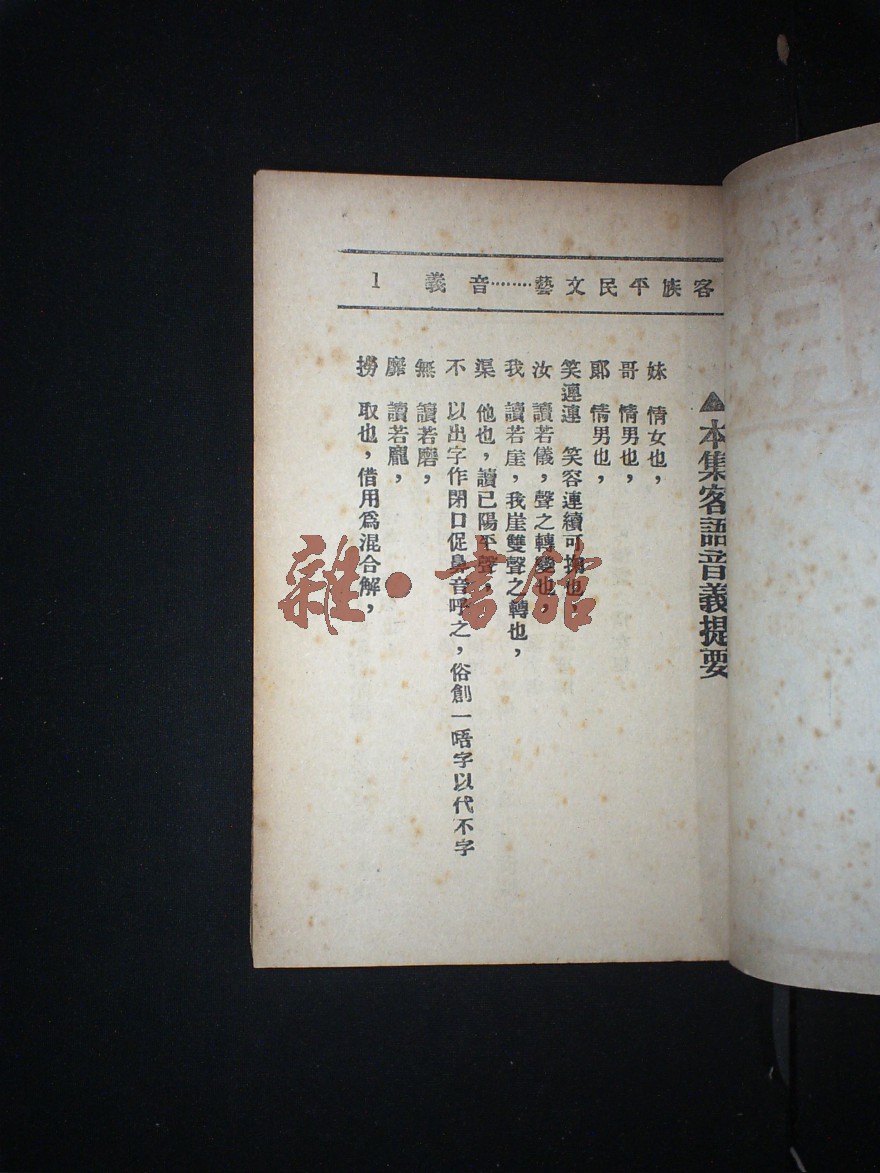 客族平民文藝………音義 1
▲本集客語音義提要
妹 情女也，
哥 情男也，
郎 情男也，
笑連連 笑容連續可掬也，
汝 讀若儀，聲之轉變也，
我 讀若崖，我崖雙聲之轉也，
渠 他也，讀已陽平聲，
不 以出字作閉口促鼻音呼之，俗創一唔字以代不字
無 讀若磨，
讀若龐，
撈 取也，借用爲混合解，
雜·書館